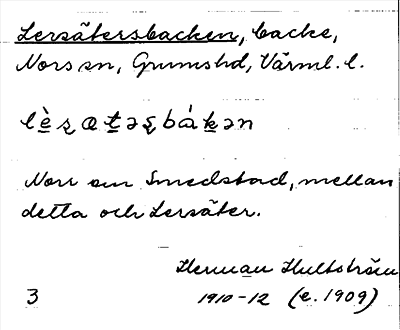 Lersätersbacken, backe,
Nors sn, Grums hd, Värml. l.
Norr om Smedstad, mellan
detta och Lersäter.
Herman Hultström
3 1910-12 (e. 1909)